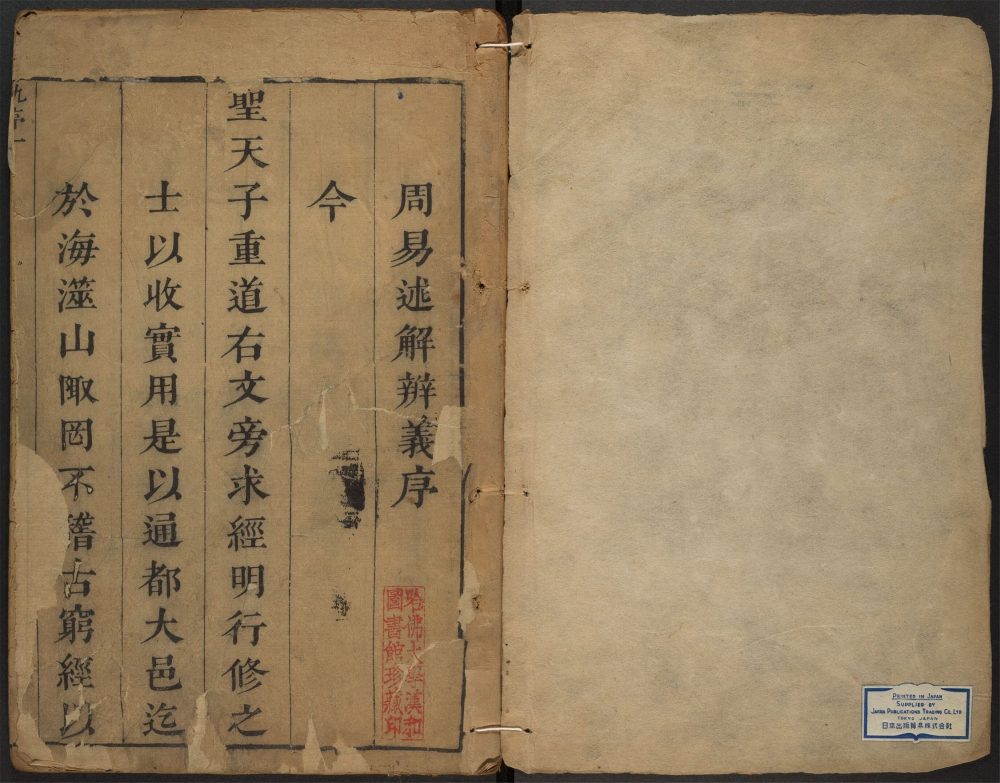 周易述解辨義序
今
聖天子重道右文旁求經明行修之
士以收實用是以通都大邑迄
於海澨山陬罔不稽古窮經以
哈佛大學漢和
圖書館珍藏印
PRINTED IN JAPAN
SUPPLIED BY
JAPAN PUBLICATIONS TRADING CO., LTD
TOKYO JAPAN
日本出版貿易株式会社